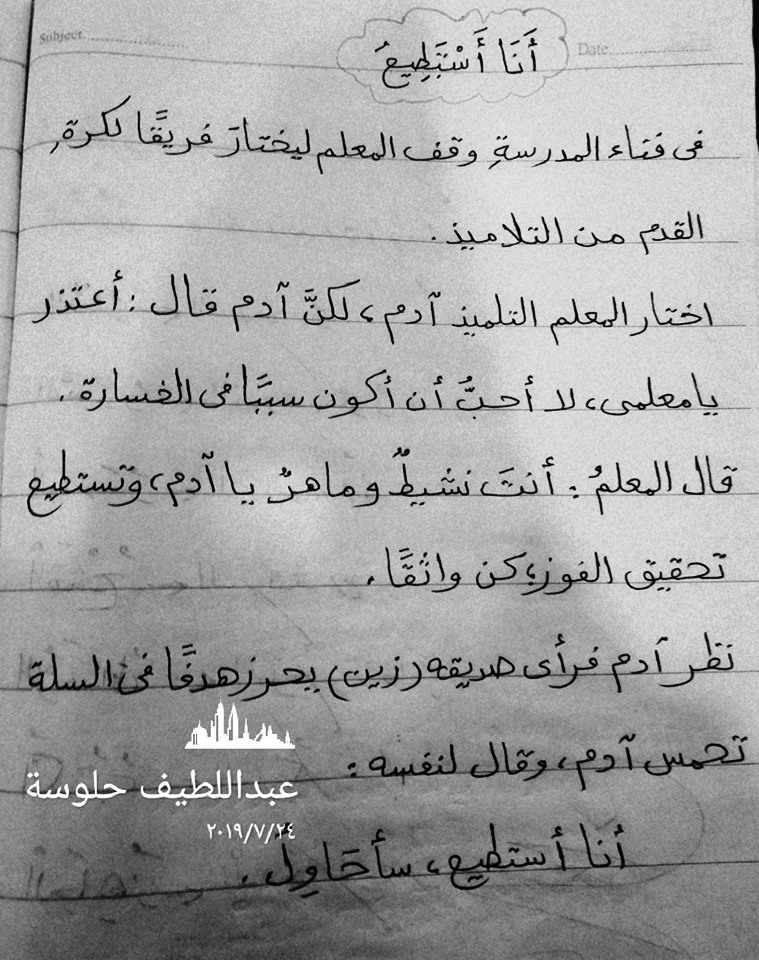 Subject
Date
أَنَا أَسْتَطِيعُ
فى فناء المدرسةِ وقف المعلم ليختارَ فريقًا لكرةِ
القدم من التلاميذ.
اختار المعلم التلميذ آدم، لكنَّ آدم قال : أعتذر
يا معلمى، لا أحبُّ أن أكون سببًا فى الخسارة .
قال المعلمُ : أنتَ نشيطٌ وماهرٌ يا آدم، وتستطيع
تحقيق الفوزِ؛ كن واثقًا.
نظر آدم فرأى صديقه (زين) يحرز هدفًا فى السلة
تحمس آدم، وقال لنفسه :
أنا أستطيع، سأحَاوِل .
عبداللطيف حلوسة
٢٠١٩/٧/٢٤